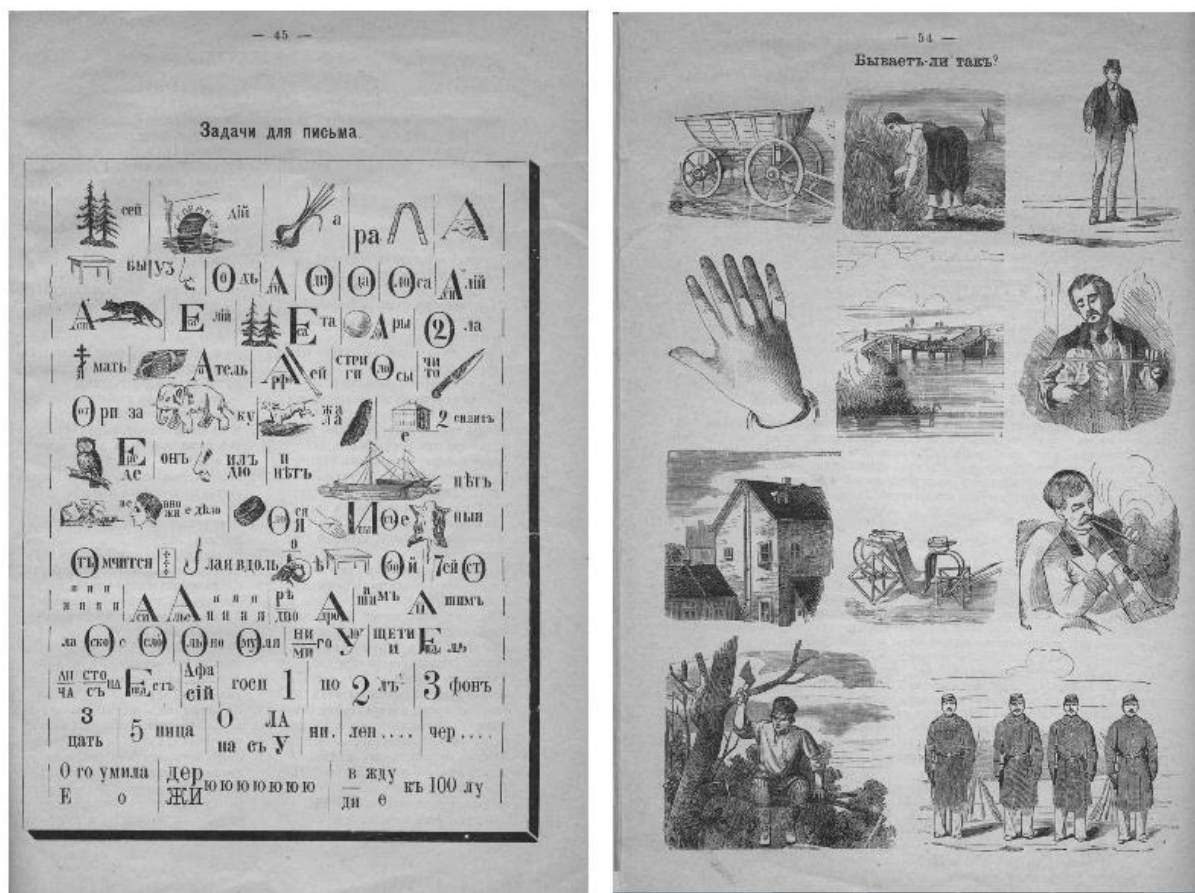 — 45 —
Задачи для письма.
сей дій а ра
бы уз одъ ди да ло са лій
лій та ры 2 ла
мать атель ей стри ги ло сы чи то
от ри за ку жа ла е 2 сидитъ
де онъ илъ дю и нѣтъ нѣтъ
е дѣло ло ся ный
тъ мчится лаи вдоль ѣ бо й 7 ей ст
я я я я я я я рѣ дво а шимъ
ла ско е сло льно му ля ни ми го У ю щети и
ли ча сто съ на стъ Афа сій госп 1 по 2 лъ 3 фонъ
3 цать 5 ница О ЛА на съ У ни. лен .... чер ....
О го умила Е о дер жи ю ю ю ю ю ю ю в жду ди е къ 100 лу
— 54 —
Бываетъ-ли такъ?